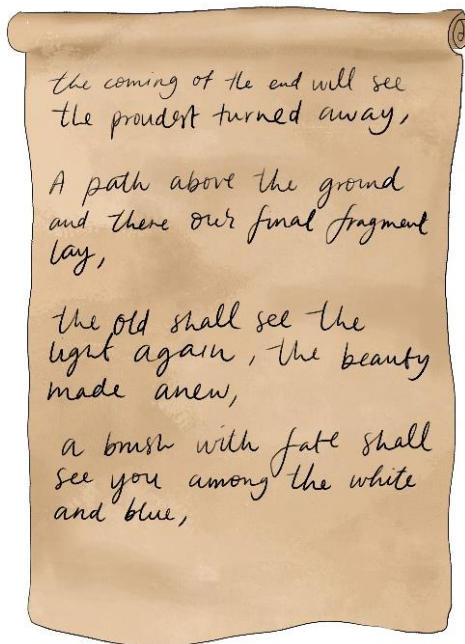 the coming of the end will see
the proudest turned away,
A path above the ground
and there our final fragment
lay,
the old shall see the
light again, the beauty
made anew,
a brush with fate shall
see you among the white
and blue,